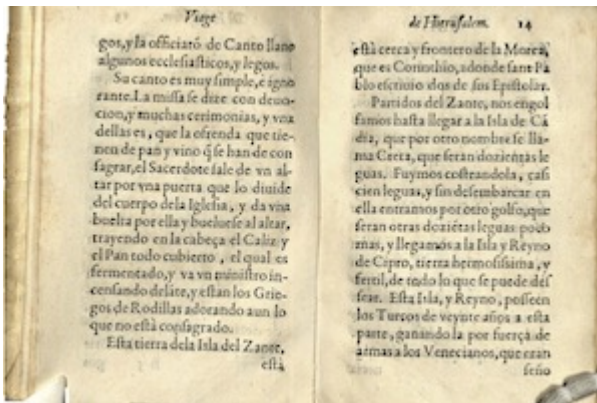 Viage
gos, y la officiarō de Canto llano
algunos ecclesiasticos, y legos.
Su canto es muy simple, e igno
rante. La missa se dize con deuo-
cion, y muchas cerimonias, y vna
dellas es, que la ofrenda que tie-
nen de pan y vino q̃ se han de con
sagrar, el Sacerdote sale de vn al-
tar por vna puerta que lo diuide
del cuerpo de la Iglesia, y da vna
buelta por ella y bueluese al altar,
trayendo en la cabeça el Caliz y
el Pan todo cubierto, el qual es
fermentado, y va vn ministro in-
censando delāte, y estan los Grie-
gos de Rodillas adorando aun lo
que no està consagrado.
Esta tierra dela Isla del Zante,
està
de Hierusalem. 14
està cerca y frontero de la Morea,
que es Corinthio, adonde sant Pa
blo escriuio dos de sus Epistolas.
Partidos del Zante, nos engol
famos hasta llegar a la Isla de Cā
dia, que por otro nombre se lla-
ma Creta, que seran dozientas le
guas. Fuymos costeandola, casi
cien leguas, y sin desembarcar en
ella entramos por otro golfo, que
seran otras doziētas leguas poco
mas, y llegamos a la Isla y Reyno
de Cipro, tierra hermosissima, y
fertil, de todo lo que se puede des
sear. Esta Isla, y Reyno, posseen
los Turcos de veynte años a esta
parte, ganando la por fuerça de
armas a los Venecianos, que eran
seño